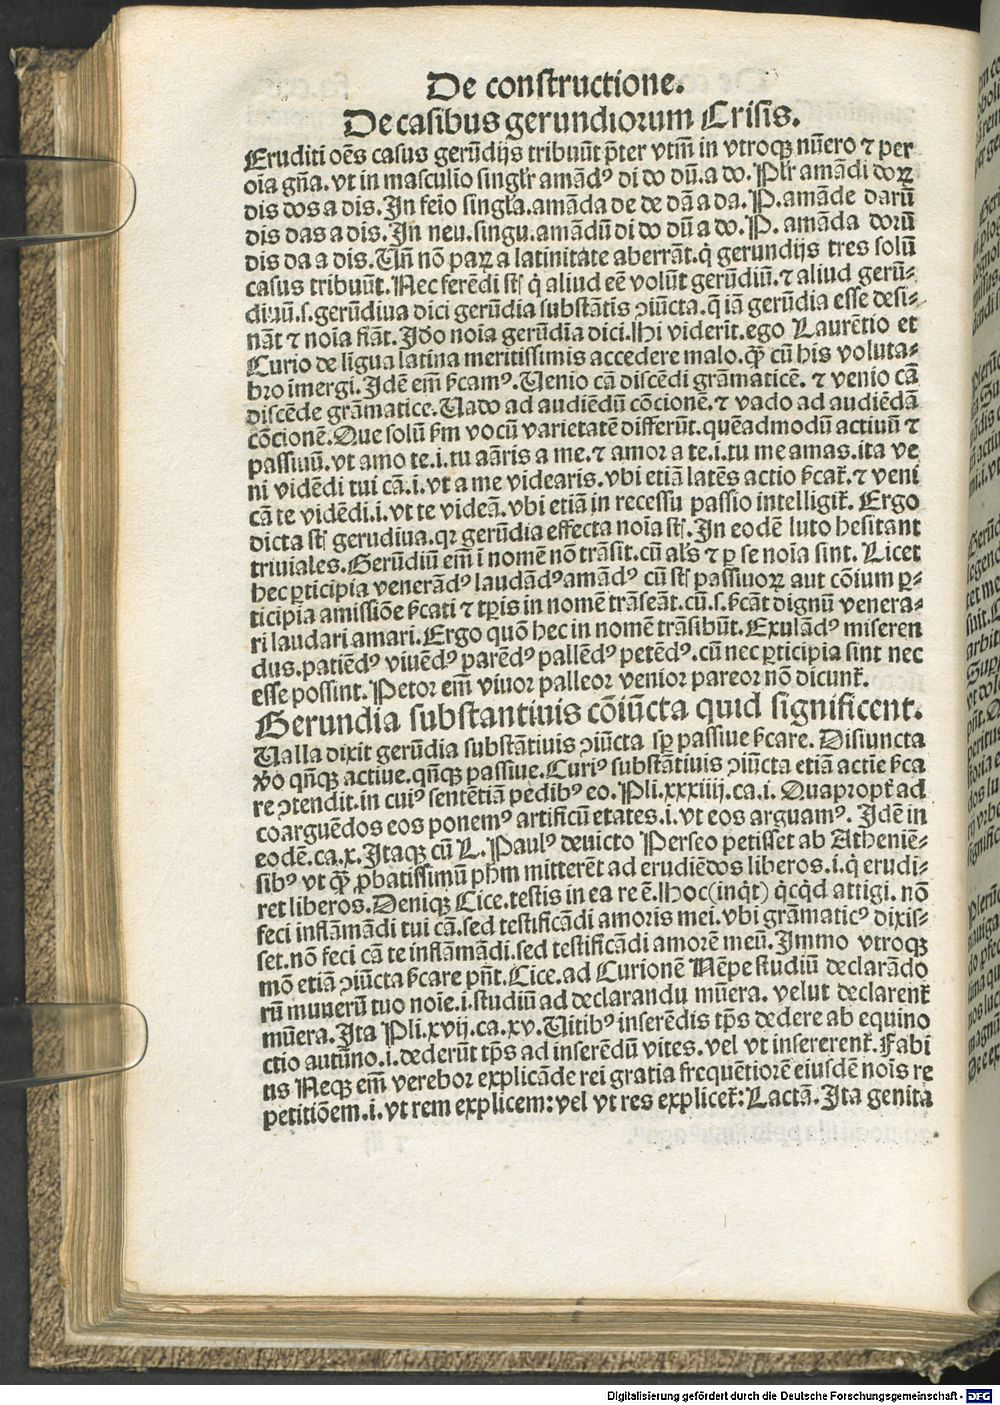 De constructione.
De casibus gerundiorum Crisis.
Eruditi oēs casus gerūdijs tribuūt p̄ter vtm̄ in vtroqꝫ nūero ⁊ per
oīa gn̄a. vt in masculio singl̓r amādꝰ di do dū. a do. Pl̓r amādi doꝝ
dis dos a dis. In feīo singl̓a. amāda de de dā a da. P. amāde darū
dis das a dis. In neu. singu. amādū di do dū a do. P. amāda dorū
dis da a dis. Un̄ nō paꝝ a latinitate aberrāt. q̇ gerundijs tres solū
casus tribuūt. Nec ferēdi st̄ q̇ aliud eē volūt gerūdiū. ⁊ aliud gerū-
diuū. s. gerūdiua dici gerūdia substātis ꝯiūcta. q̄ iā gerūdia esse desi-
nāt ⁊ noīa fiāt. Idō noīa gerūdīa dici. Ihi viderit. ego Laurētio et
Curio de līgua latina meritissimis accedere malo. qꝫ̄ cū his voluta-
bro imergi. Idē em̄ s̄camꝰ. Uenio cā discēdi grāmaticē. ⁊ venio cā
discēde grāmatice. Uado ad audiēdū cōcionē. ⁊ vado ad audiēdā
cōcionē. Que solū s̄m vocū varietatē differūt. quēadmodū actiuū ⁊
passiuū. vt amo te. i. tu aāris a me. ⁊ amor a te. i. tu me amas. ita ve
ni vidēdi tui cā. i. vt a me videaris. vbi etiā latēs actio s̄cat̄. ⁊ veni
cā te vidēdi. i. vt te videā. vbi etiā in recessu passio intelligit̄. Ergo
dicta st̄ gerudiua. qꝛ gerūdia effecta noīa st̄. In eodē luto hesitant
triuiales. Gerūdiū em̄ ī nomē nō trāsit. cū al̓s ⁊ ꝑ se noīa sint. Licet
hec ꝑticipia venerādꝰ laudādꝰ amādꝰ cū st̄ passiuoꝝ aut cōium ꝑ-
ticipia amissiōe s̄cati ⁊ tꝑis in nomē trāseāt. cū. s. s̄cāt dignū venera-
ri laudari amari. Ergo quō hec in nomē trāsibūt. Exulādꝰ miseren
dus. patiēdꝰ viuēdꝰ parēdꝰ pallēdꝰ petēdꝰ. cū nec ꝑticipia sint nec
esse possint. Petor em̄ viuor palleor venior pareor nō dicunt̄.
Gerundia substantiuis cōiūcta quid significent.
Ualla dixit gerūdia substātiuis ꝯiūcta sꝑ passiue s̄care. Disiuncta
v̄o qn̄qꝫ actiue. qn̄qꝫ passiue. Curiꝰ substātiuis ꝯiūcta etiā actiē s̄ca
re ꝯtendit. in cuiꝰ sentētiā pedibꝰ eo. Pli. xxxiiij. ca. i. Quapropt̄ ad
coarguēdos eos ponemꝰ artificū etates. i. vt eos arguamꝰ. Idē in
eodē. ca. x. Itaqꝫ cū L. Paulꝰ deuicto Perseo petisset ab Atheniē-
sibꝰ vt qꝫ̄ ꝓbatissimū phm̄ mitterēt ad erudiēdos liberos. i. q̇ erudi-
ret liberos. Deniqꝫ Cice. testis in ea re ē. Ihoc (inq̇t) q̇cq̇d attigi. nō
feci inflāmādi tui cā. sed testificādi amoris mei. vbi grāmaticꝰ dixis-
set. nō feci cā te inflāmādi. sed testificādi amorē meū. Immo vtroqꝫ
mō etiā ꝯiūcta s̄care pn̄t. Cice. ad Curionē Nēpe studiū declarādo
rū munerū tuo noīe. i. studiū ad declarandu mūera. velut declarent̄
mūera. Ita Pli. xvij. ca. xv. Uitibꝰ inserēdis tp̄s dedere ab equino
ctio autūno. i. dederūt tp̄s ad inserēdū vites. vel vt insererent̄. Fabi
us Neqꝫ em̄ verebor explicāde rei gratia frequētiorē eiusdē noīs re
petitiōem. i. vt rem explicem: vel vt res explicet̄: Lactā. Ita genita
Digitalisierung gefördert durch die Deutsche Forschungsgemeinschaft - DFG